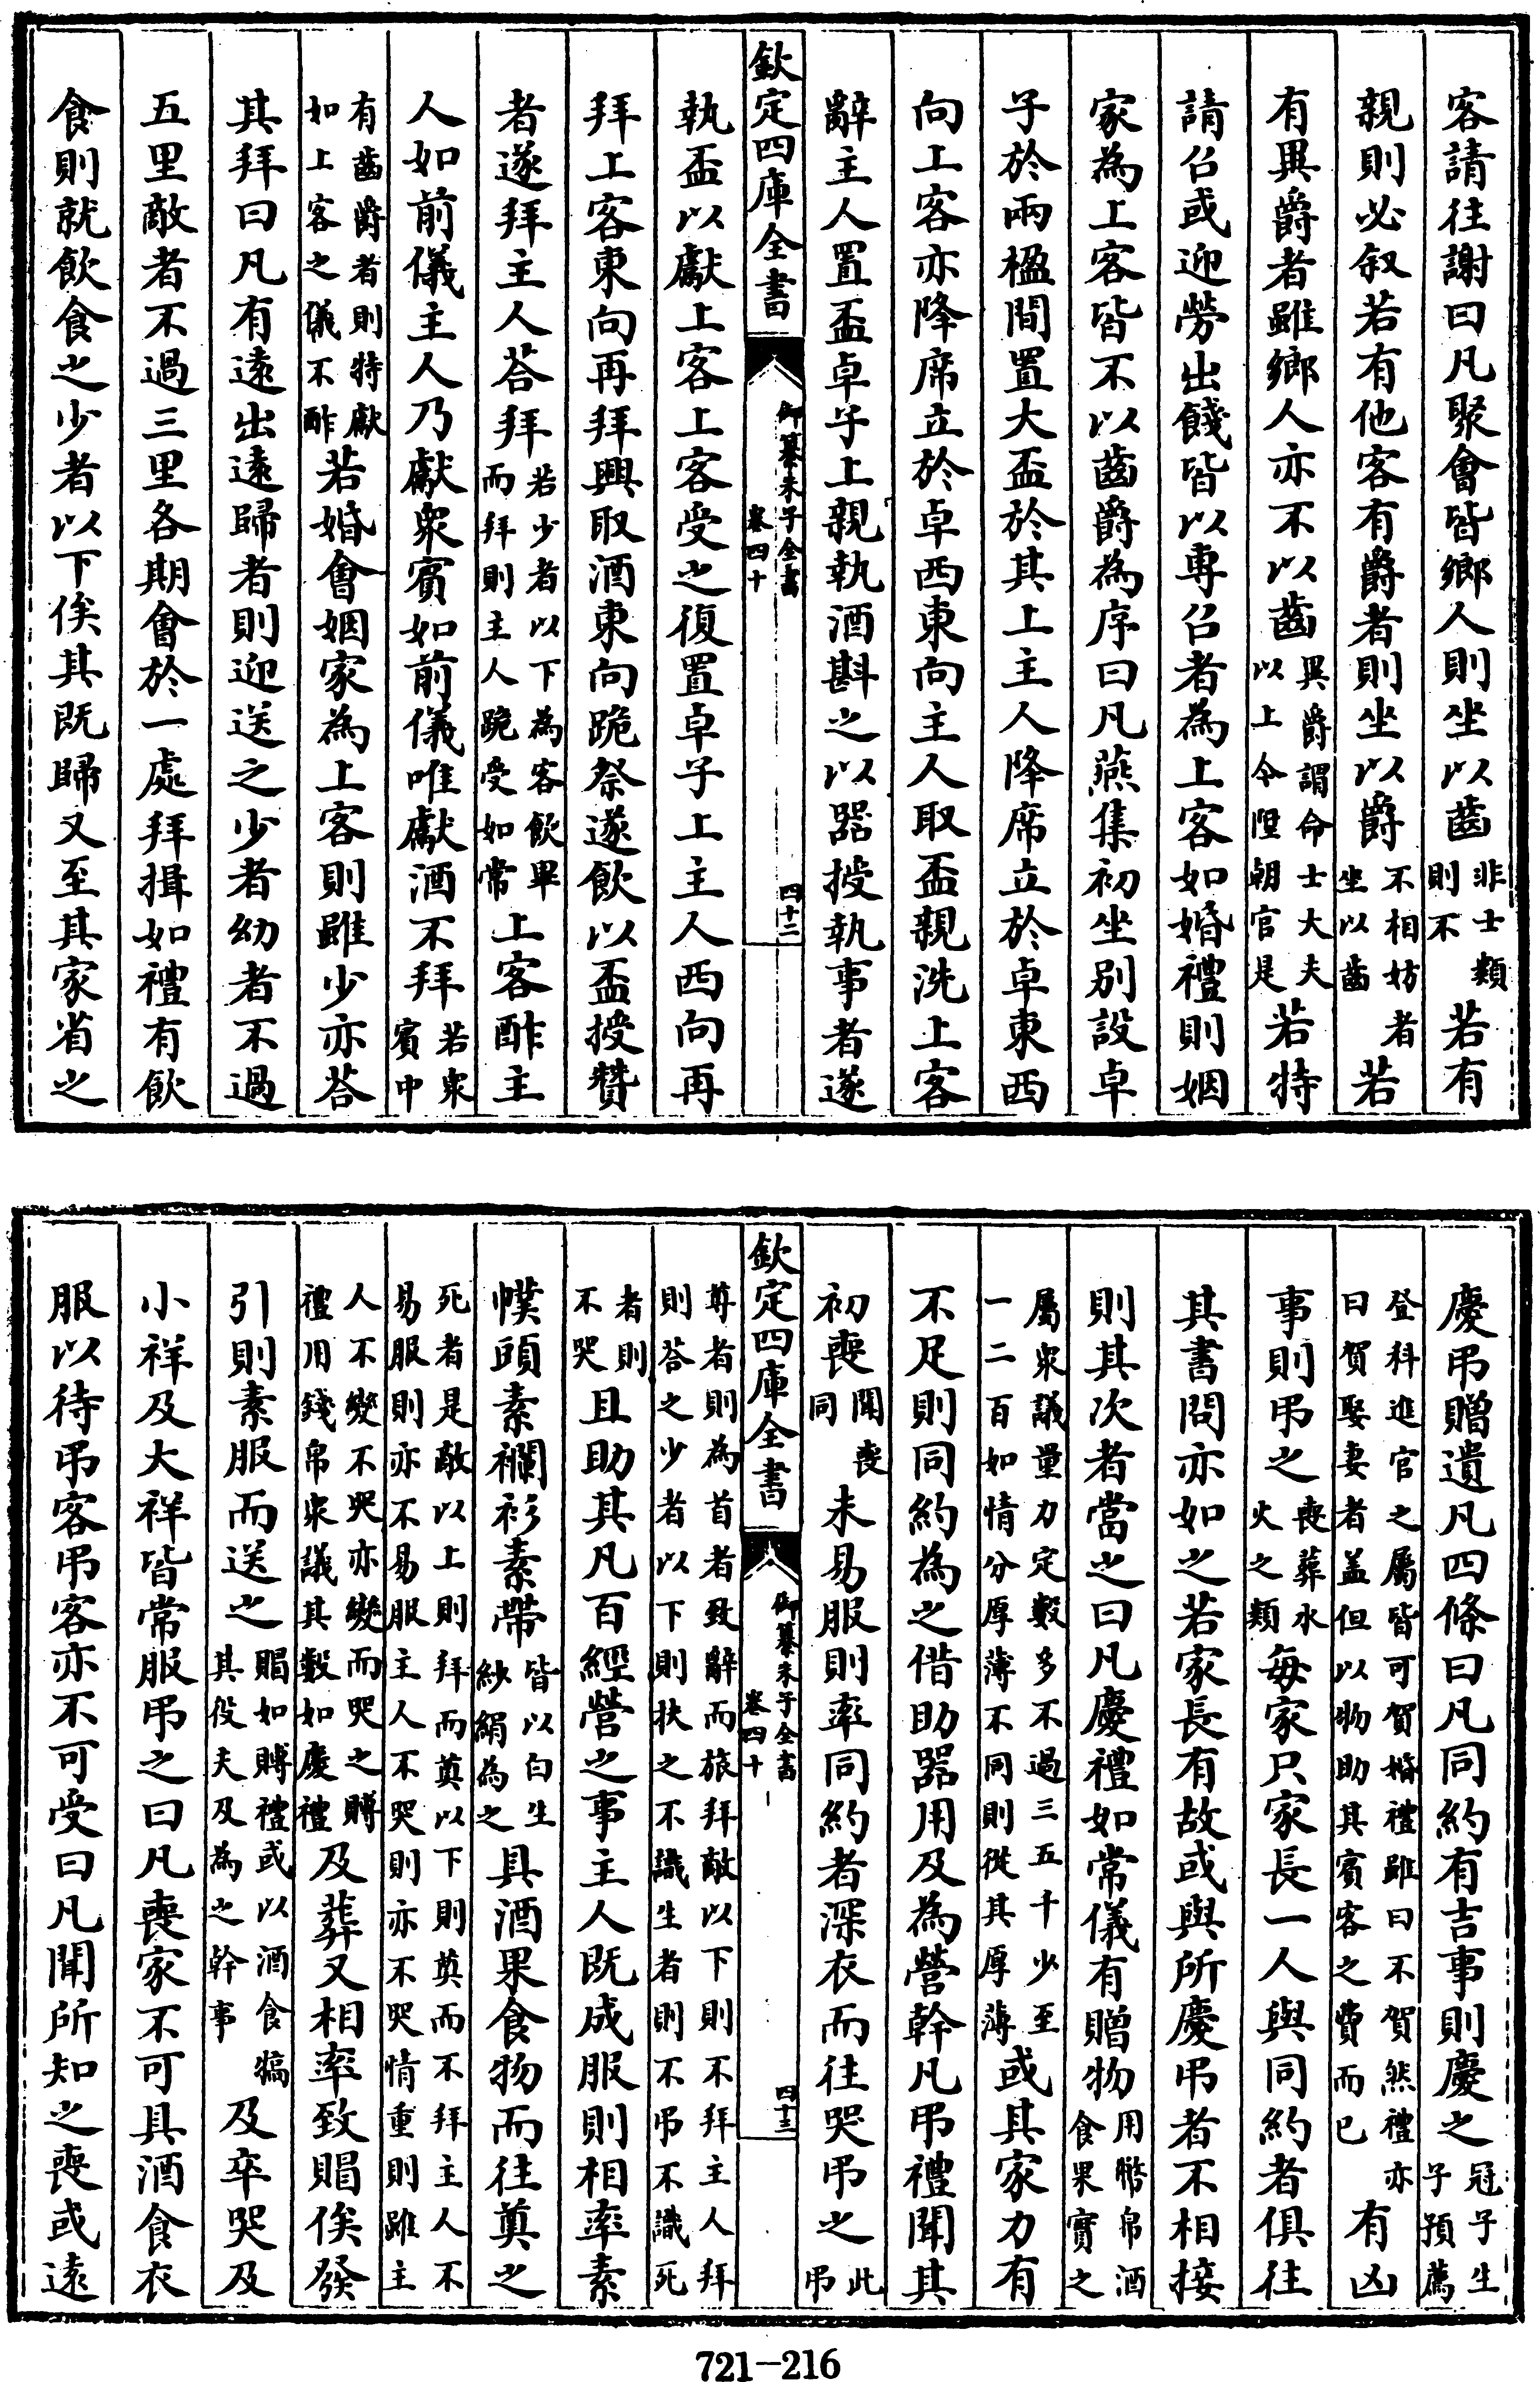 客請往謝曰凡聚會皆鄉人則坐以齒非士類則不若有
親則必叙若有他客有爵者則坐以爵不相妨者坐以齒若
有異爵者雖鄉人亦不以齒異爵謂命士大夫以上今陞朝官是若特
請召或迎勞出餞皆以專召者為上客如婚禮則姻
家為上客皆不以齒爵為序曰凡燕集初坐別設卓
子於兩楹間置大盃於其上主人降席立於卓東西
向上客亦降席立於卓西東向主人取盃親洗上客
辭主人置盃卓子上親執酒斟之以器授執事者遂
欽定四庫全書
御纂朱子全書
卷四十
四十二
執盃以獻上客上客受之復置卓子上主人西向再
拜上客東向再拜興取酒東向跪祭遂飲以盃授贊
者遂拜主人荅拜若少者以下為客飲畢而拜則主人跪受如常上客酢主
人如前儀主人乃獻衆賓如前儀唯獻酒不拜若衆賓中
有齒爵者則特獻如上客之儀不酢若婚會姻家為上客則雖少亦荅
其拜曰凡有遠出遠歸者則迎送之少者幼者不過
五里敵者不過三里各期會於一處拜揖如禮有飲
食則就飲食之少者以下俟其既歸又至其家省之
慶弔贈遺凡四條曰凡同約有吉事則慶之冠子生子預薦
登科進官之屬皆可賀婚禮雖曰不賀然禮亦曰賀娶妻者盖但以物助其賓客之費而已有凶
事則弔之喪葬水火之類每家只家長一人與同約者俱往
其書問亦如之若家長有故或與所慶弔者不相接
則其次者當之曰凡慶禮如常儀有贈物用幣帛酒食果實之
屬衆議量力定數多不過三五千少至一二百如情分厚薄不同則從其厚薄或其家力有
不足則同約為之借助器用及為營幹凡弔禮聞其
初喪聞喪同未易服則率同約者深衣而往哭弔之此弔
欽定四庫全書
御纂朱子全書
卷四十
四十三
尊者則為首者致辭而旅拜敵以下則不拜主人拜則荅之少者以下則扶之不識生者則不弔不識死
者則不哭且助其凡百經營之事主人既成服則相率素
幞頭素襴衫素帶皆以白生紗絹為之具酒果食物而往奠之
死者是敵以上則拜而奠以下則奠而不拜主人不易服則亦不易服主人不哭則亦不哭情重則雖主
人不變不哭亦變而哭之賻禮用錢帛衆議其數如慶禮及葬又相率致賵俟發
引則素服而送之賵如賻禮或以酒食犒其役夫及為之幹事及卒哭及
小祥及大祥皆常服弔之曰凡喪家不可具酒食衣
服以待弔客弔客亦不可受曰凡聞所知之喪或遠
721-216